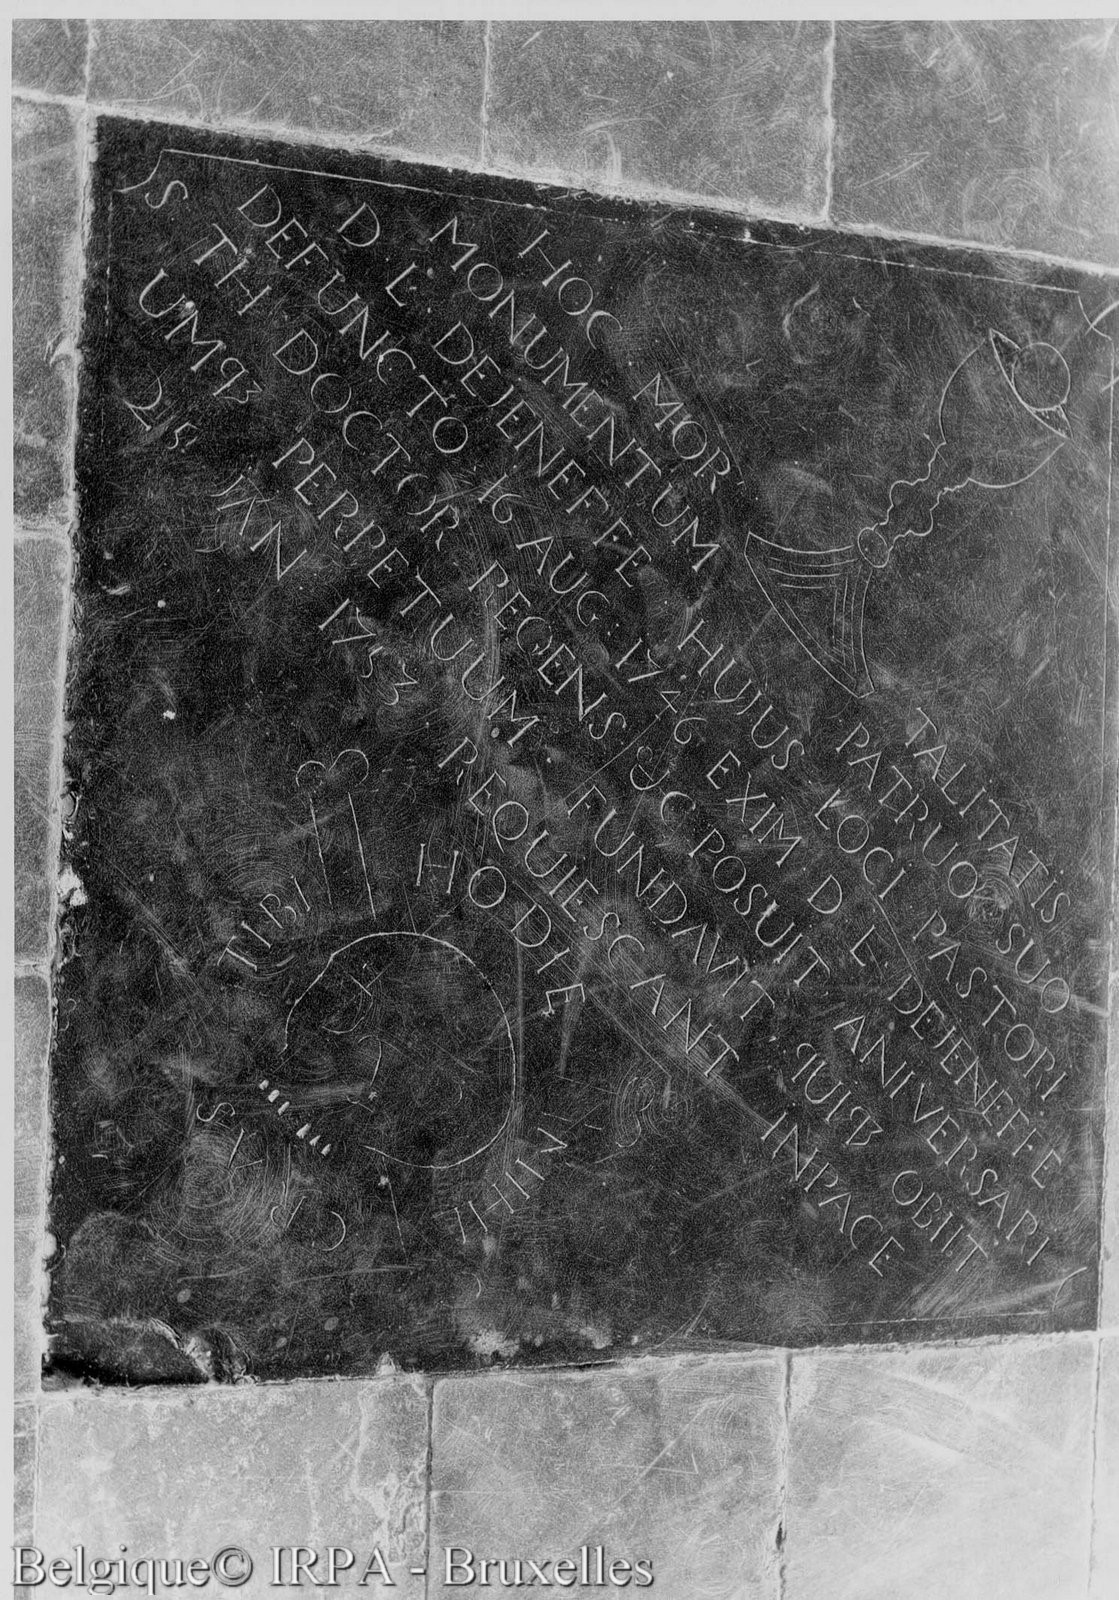 HOC MOR TALITATIS
MONUMENTUM PATRUO SUO
D L DEJENEFFE HUJUS LOCI PASTORI
DEFUNCTO 16 AUG 1746 EXIM D L DEJENEFFE
S TH DOCTOR REGENS &C POSUIT ANIVERSARI
UMQ3 PERPETUUM FUNDAVIT QUIQ3 OBIIT
25 JAN 1753 REQUIESCANT IN PACE
HODIE
TIBI
CRAS
Belgique© IRPA - Bruxelles